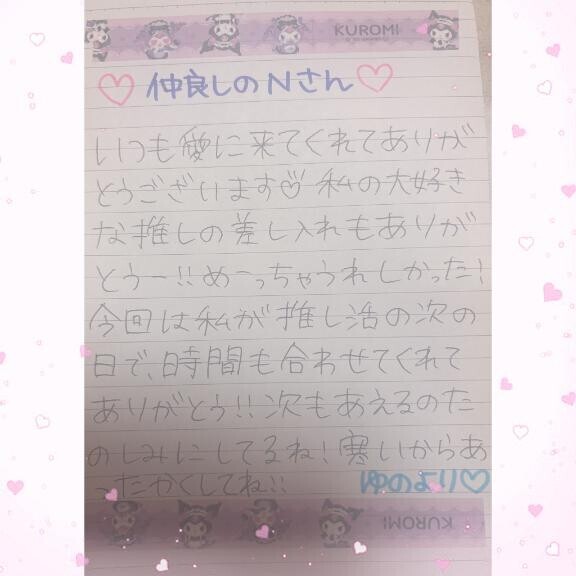 KUROMI
仲良しのNさん
いつも愛に来てくれてありが
とうございます♡ 私の大好き
な推しの差し入れもありが
とうー!! めーっちゃうれしかった!
今回は私が推し活の次の
日で、時間も合わせてくれて
ありがとう!! 次もあえるのた
のしみにしてるね! 寒いからあ
ったかくしてね!!
ゆのより♡
KUROMI